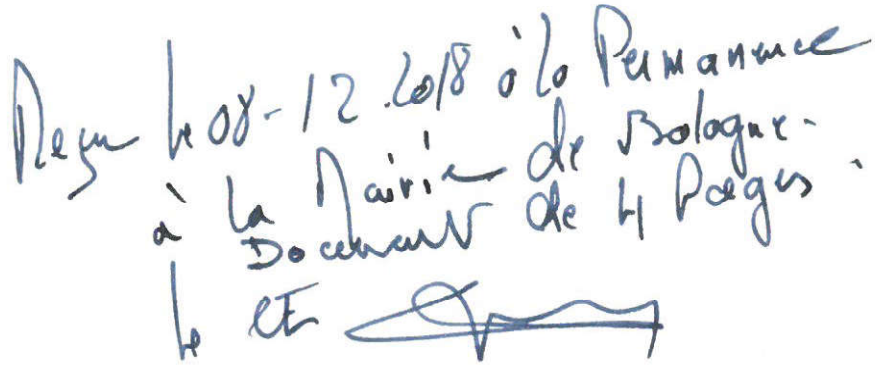 Reçu le 08-12.2018 à la Permanence
à la Mairie de Bologne.
Document de 4 Pages.
le CE